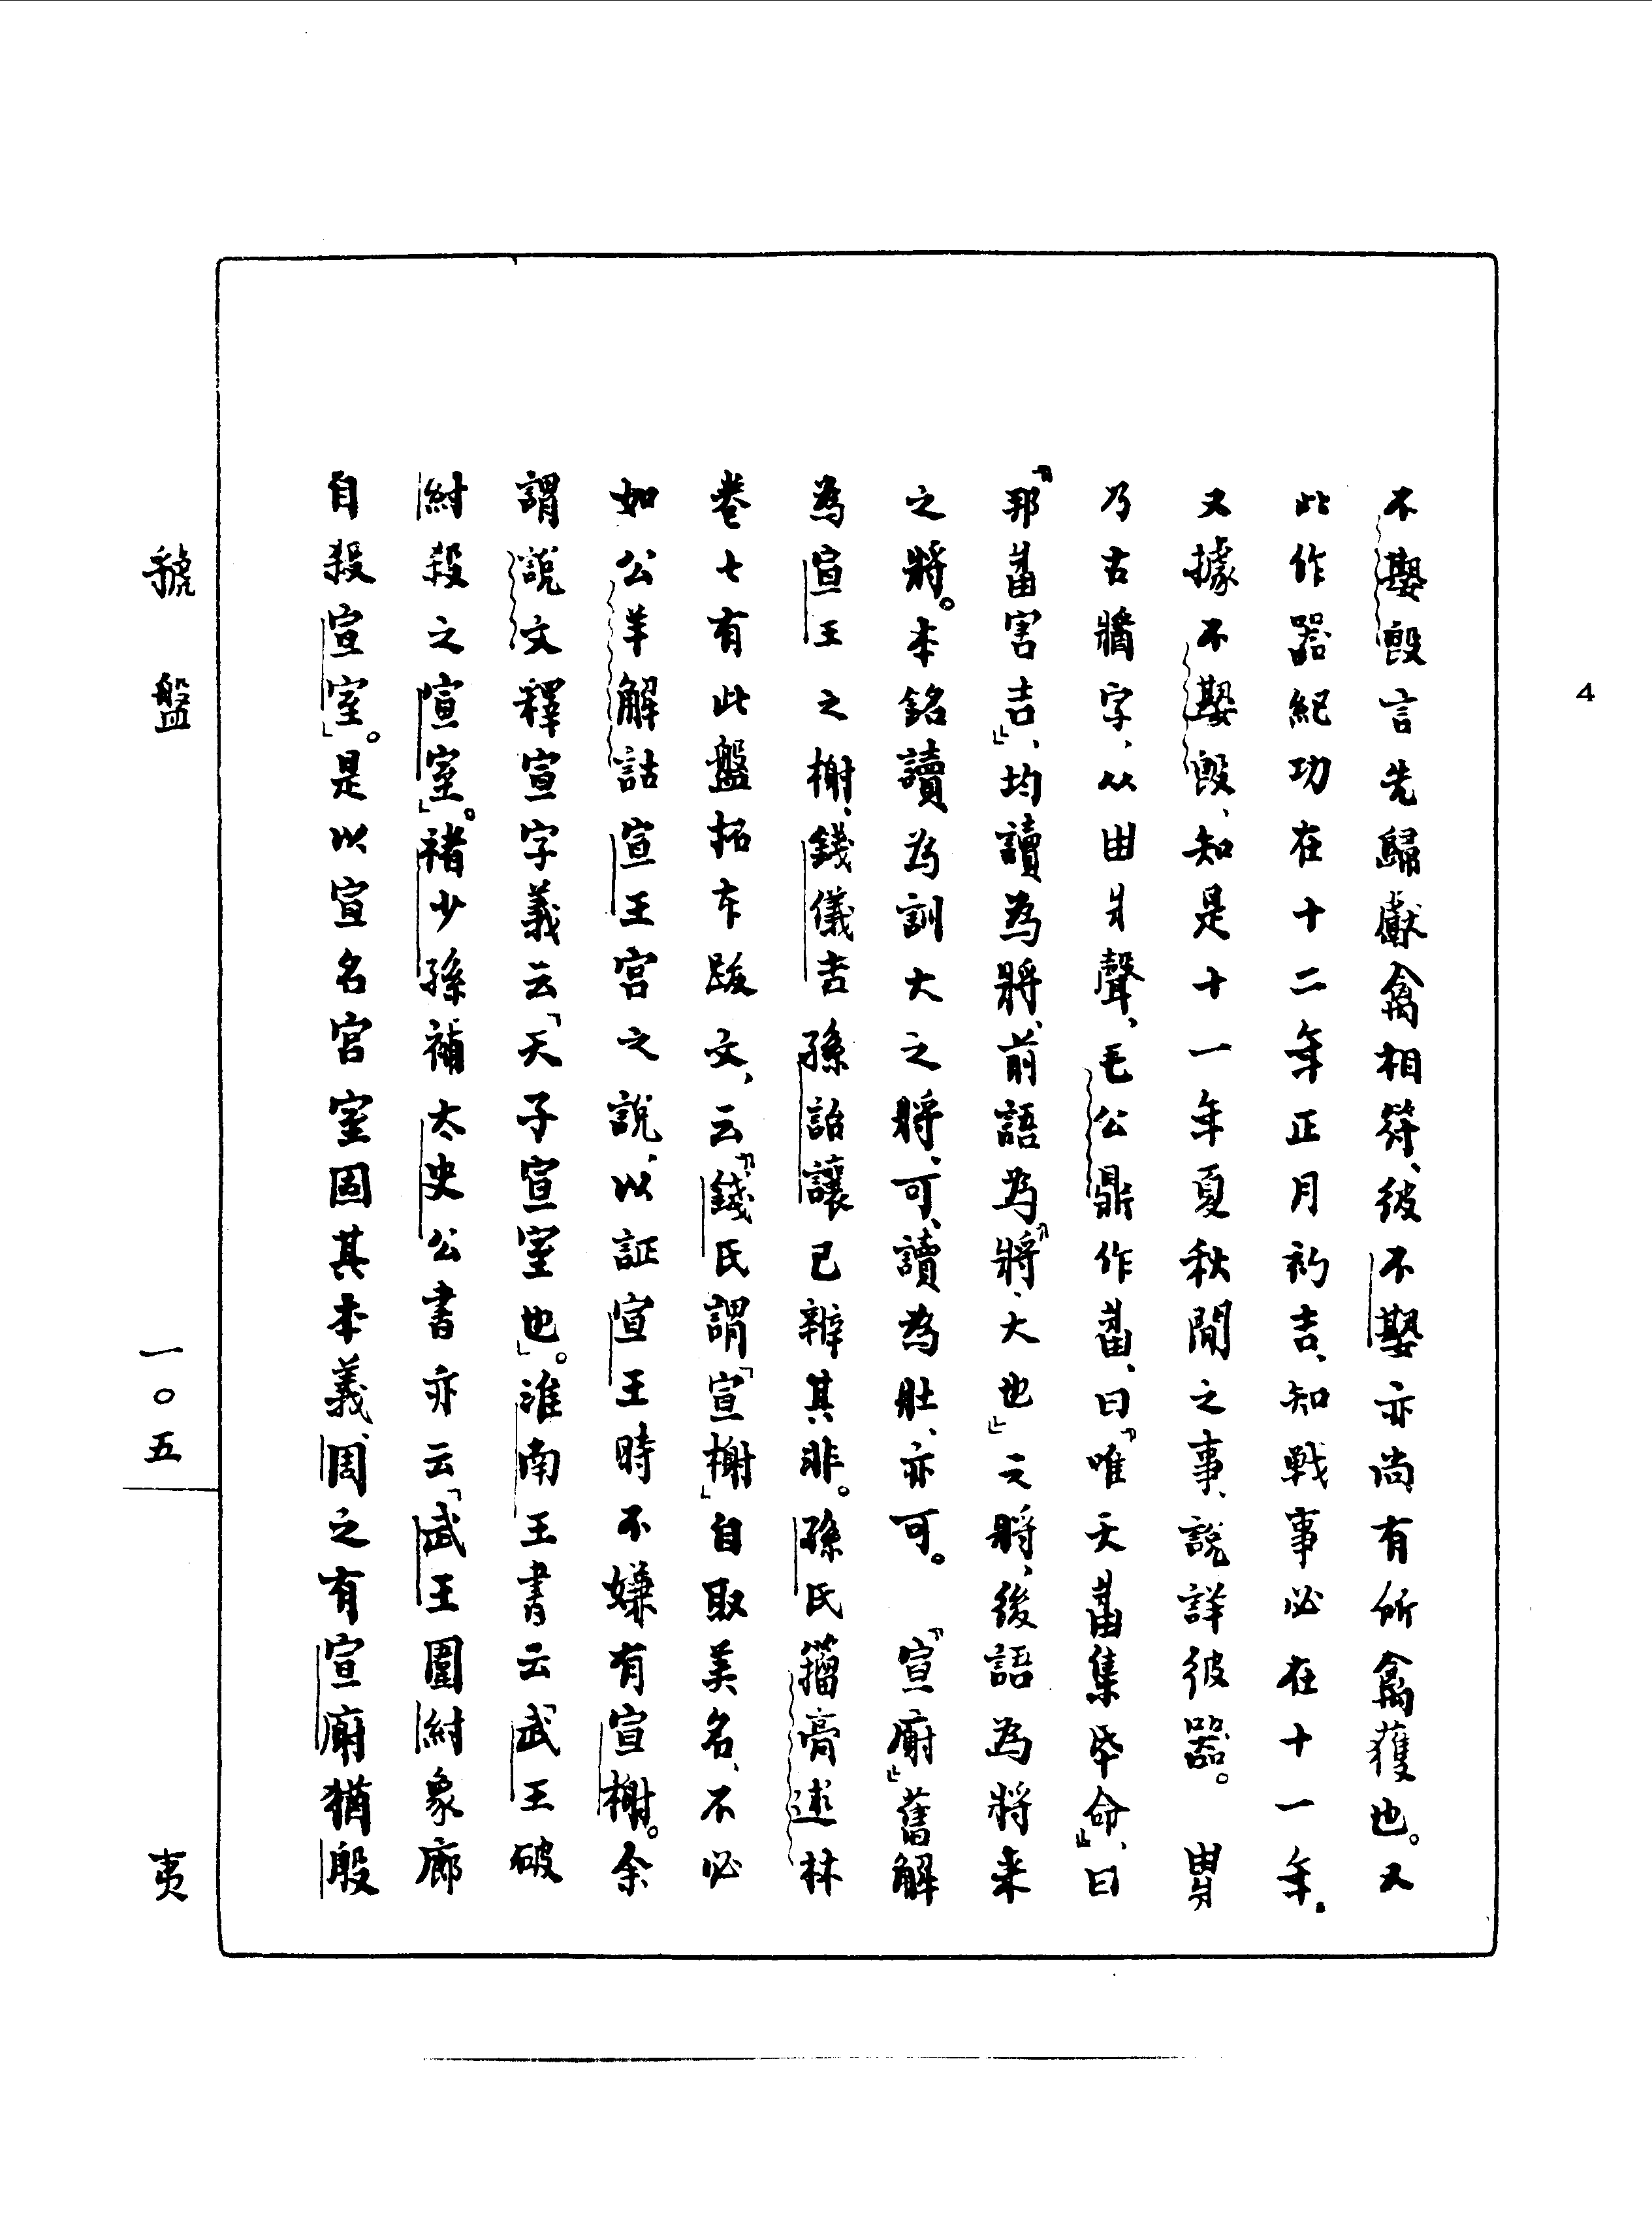 不𡢁𣪘言先歸獻禽相符、彼不𡢁亦尚有所禽獲也。又
此作器紀功在十二年正月初吉、知戰事必在十一年。
又據不𡢁𣪘、知是十一年夏秋間之事、說詳彼器。
乃古牆字、从由爿聲、毛公鼎作𤖕、曰『唯天𤖕集氒命』、曰
『邦𤖕害吉』、均讀為將、前語為『將、大也』之將、後語為將來
之將。本銘讀為訓大之將、可、讀為壯、亦可。 『宣廟』舊解
為宣王之榭、錢儀吉孫詒讓已辨其非。孫氏籀膏述林
卷七有此盤拓本跋文、云『錢氏謂「宣榭」自取美名、不必
如公羊解詁宣王宮之說、以証宣王時不嫌有宣榭。余
謂說文釋宣字義云「天子宣室也」。淮南王書云「武王破
紂殺之宣室」。褚少孫補太史公書亦云「武王圍紂象廊
自殺宣室」。是以宣名宮室固其本義、周之有宣廟猶殷
虢盤
一〇五
夷
4